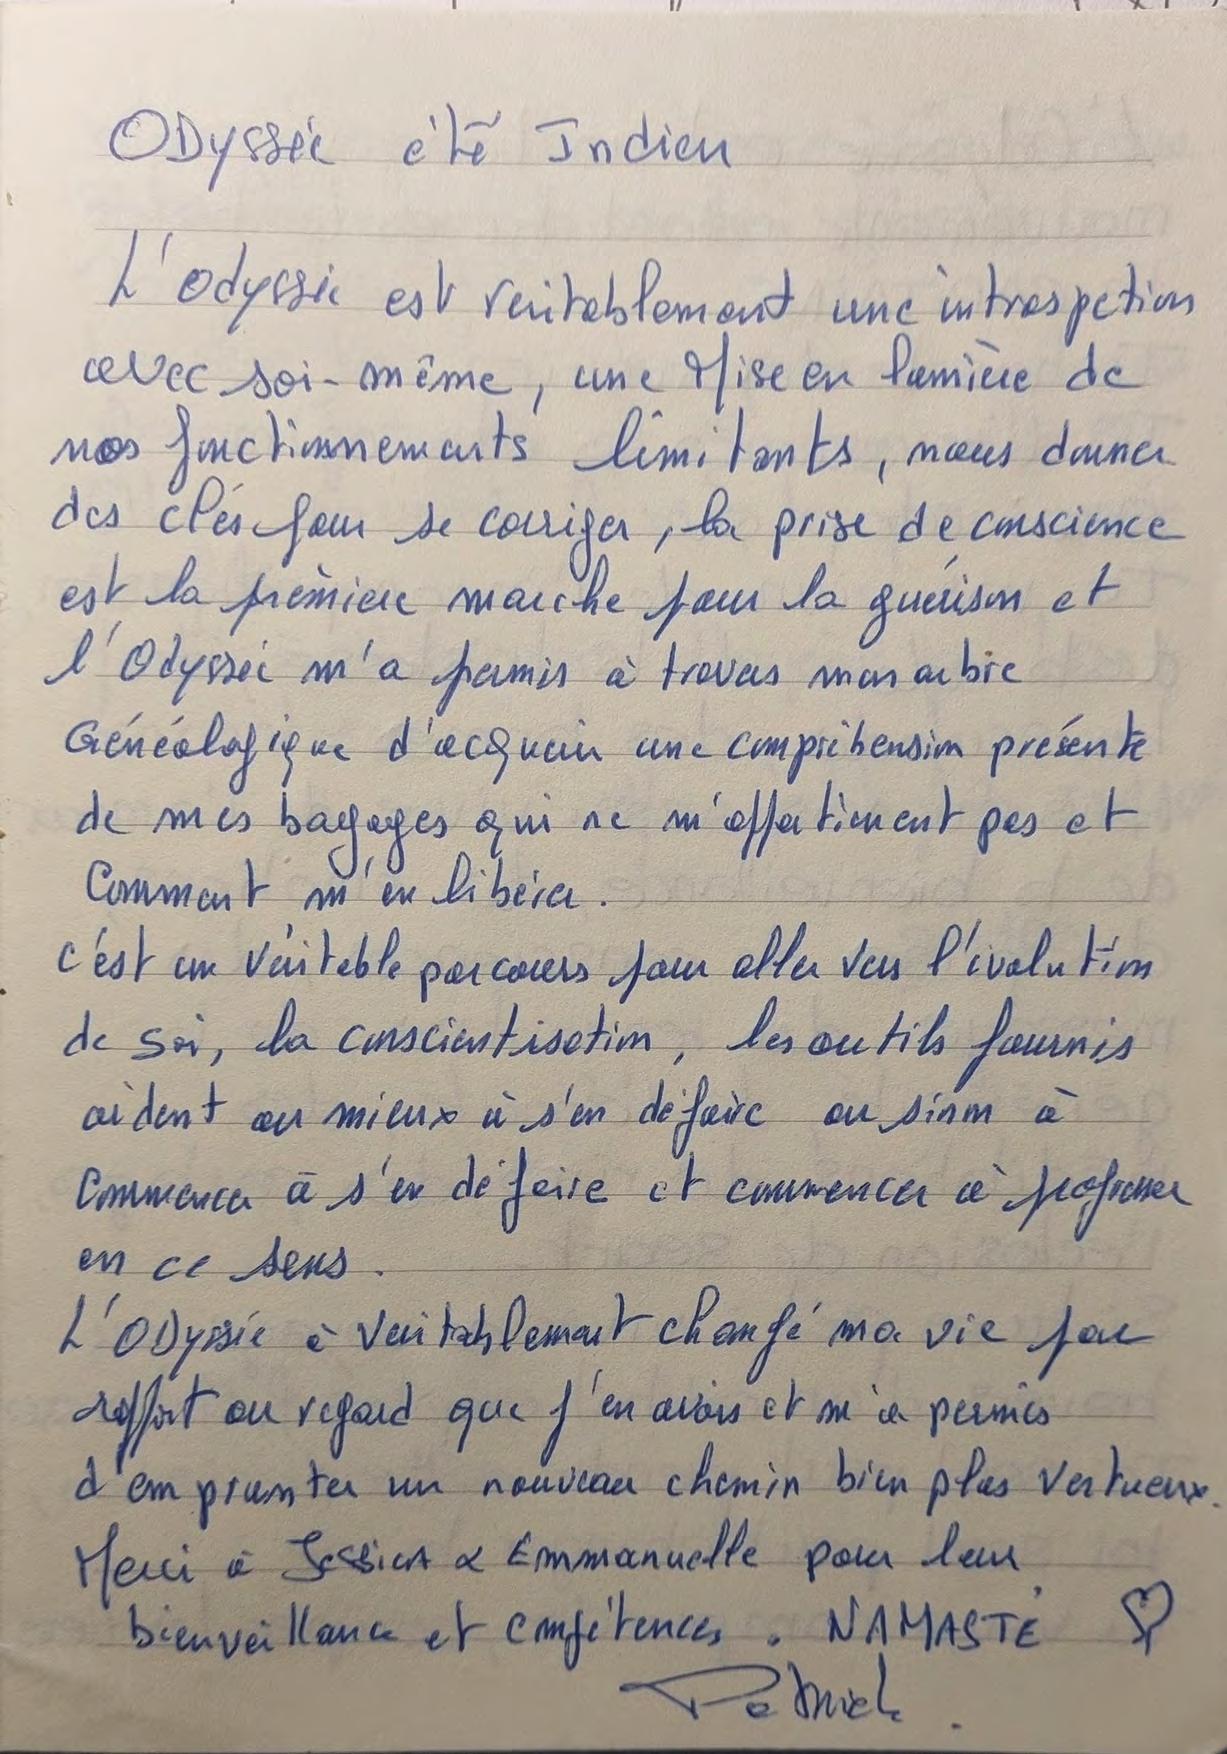 Odyssée été Indien
L'Odyssée est véritablement une introspection
avec soi-même, une Mise en lumière de
nos fonctionnements limitants, nous donner
des clés pour se corriger, la prise de conscience
est la première marche pour la guérison et
l'Odyssée m'a permis à travers mon arbre
Généalogique d'acquérir une compréhension présente
de mes bagages qui ne m'appartiennent pas et
Comment m'en libérer.
C'est un véritable parcours pour aller vers l'évolution
de soi, la conscientisation, les outils fournis
aident au mieux à s'en défaire ou sinon à
Commencer à s'en défaire et commencer à
en ce sens.
L'Odyssée à véritablement changé ma vie par
rapport au regard que j'en avais et m'a permis
d'emprunter un nouveau chemin bien plus vertueux.
Merci à Jessica & Emmanuelle pour leur
bienveillance et compétences. NAMASTÉ
Patrick.